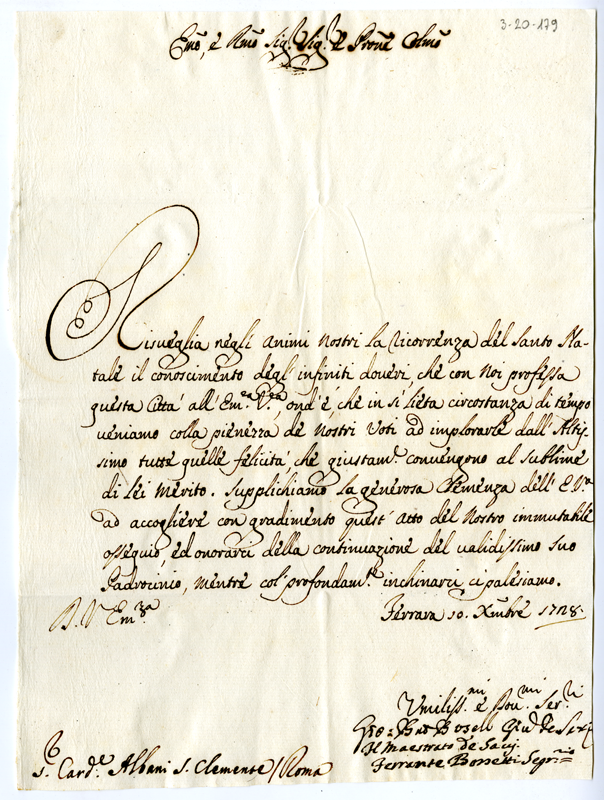 3-20-179
Emo, è Rmo Sig.r Sig.r e Prone Colmo
Risueglia negli animi nostri la ricorrenza del Santo Na-
tale il conoscimento degl' infiniti doueri, che con noi professa
questa Città all' Em.za V.ra, ond'è, che in sì lieta circostanza di tempo
veniamo colla pienezza de nostri Voti ad implorarle dall' Altis-
simo tutte quelle felicità, che giustam.te conuengono al sublime
di lei merito. Supplichiamo la generosa Clemenza dell' E.V.ra
ad accogliere con gradimento quest' atto del nostro immutabile
ossequio, ed onorarci della continuazione del ualidissimo suo
Padrocinio, mentre col' profondam.te inchinarci ci palesiamo.
D. V. Em.za
Ferrara 10. Xmbre 1728.
Vmiliss.mi è Dou.mi Ser.ri
Il Maestrato de Sauj
Ferrante Borsetti Segr.rio
S. Card.e Albani S. Clemente / Roma